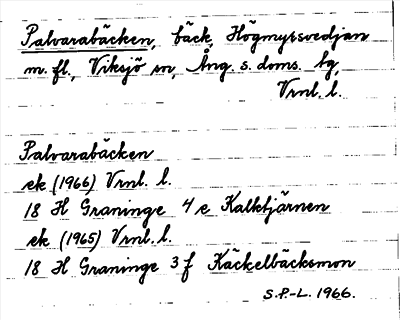 Palvarabäcken, bäck, Högmyrsvedjan
m. fl., Viksjö sn, Ång. s. doms. lg,
Vrnl. l.
Palvarabäcken
ek (1966) Vrnl. l.
18 H Graninge 4 e Kalktjärnen
ek (1965) Vrnl. l.
18 H Graninge 3 f Käckelbäcksmon
S.P.-L. 1966.